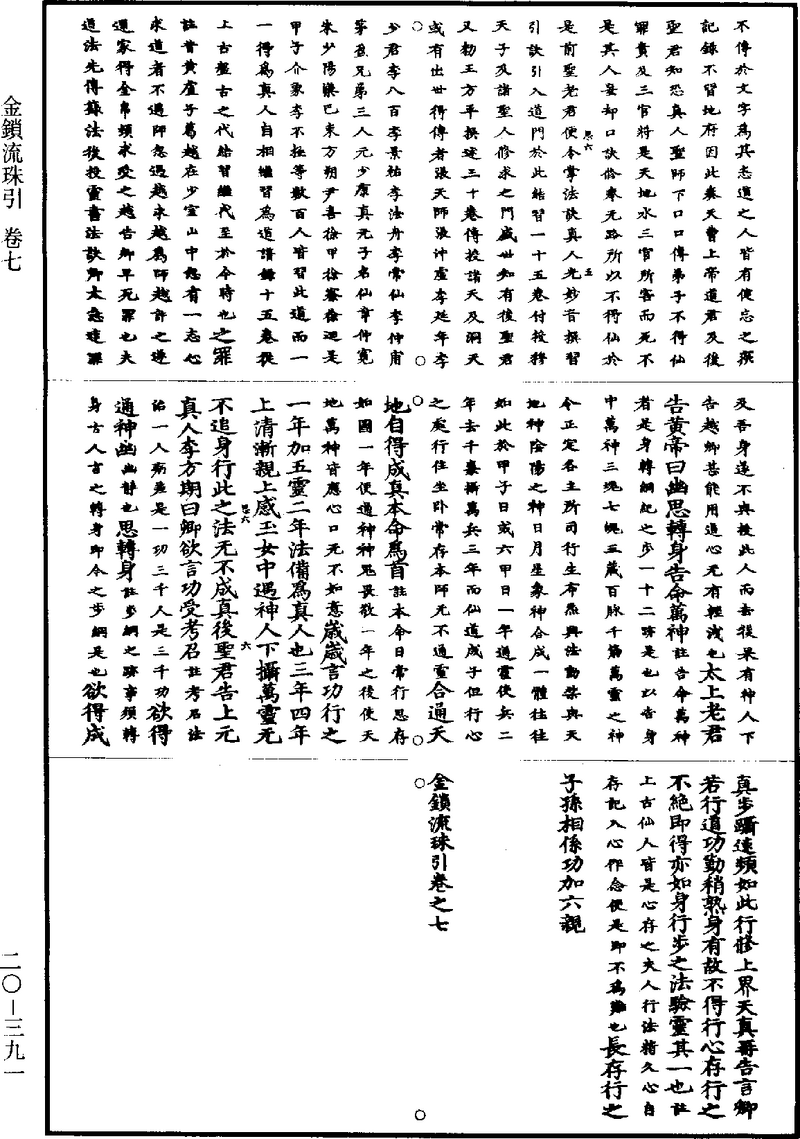 不傳於文字為其志道之人皆有使忘之撰
記錄不習地府因此奏天曹上帝道君及後
聖君知怨真人聖師下口口傳弟子不得仙
罪責及三官將是天地水三官所害而死不
是其人妄却口訣俗奉无路所以不得仙於
是前聖老君便令掌法訣真人尤妙音撰習
引訣引入道門於此結習一十五卷付授將
天子及諸聖人修求之門盛世知有後聖君
又勑王方平撰述三十卷傳授諸天及洞天
或有出世得傳者張天師張沖虛李延年李
少君李八百李景祐李法舟李常仙李仲甫
茅盈兄弟三人元少康真元子名仙章仲寬
朱少陽欒巴東方朔尹喜徐甲徐審徐迴是
甲子介象李不拯等數百人皆習此道而一
一得為真人自相繼習為道譜錄十五卷從
上古盤古之代結習繼代至於今時也之罪
註昔黃盧子葛越在少室山中忽有一志心
求道者不遇師忽遇越求越為師越許之遂
還家得金帛頻求受之越告卿早死罪也夫
道法先傳籙法後投靈書法訣卿太急違罪
及吾身遂不與授此人而去後果有神人下
告越卿甚能用道心无有輕洩也太上老君
告黃帝曰幽思轉身告命萬神註告命萬神
者是身轉綱紀之步一十二跡是也以告身
中萬神三魂七魄五藏百脉千筋萬靈之神
令正定各主所司行生布炁與法動榮與天
地神陰陽之神日月星象神合成一體往往
如此於甲子日或六甲日一年通靈使兵二
年去千妻攝萬兵三年而仙道成子但行心
之處行住坐卧常存本師无不通靈合通天
地自得成真本命為首註本命日常行思存
如國一年便通神神鬼畏敬一年之後使天
地萬神皆應心口无不如意歲歲言功行之
一年加五靈二年法備為真人也三年四年
上清漸親上感玉女中遇神人下攝萬靈无
不追身行此之法无不成真後聖君告上元
真人李方期曰卿欲言功受考召註考召法
治一人病差是一功三千人是三千功欲得
通神幽幽靜也思轉身註步綱之跡事須轉
身古人言之轉身即今之步綱是也欲得成
真步躡遠頻如此行修上界天真哥告言卿
若行道功勤稍熟身有故不得行心存行之
不絕即得亦如身行步之法驗靈其一也註
上古仙人皆是心存之夫人行法將久心自
存記入心作念便是即不為難也長存行之
子孫相係功加六親
金鎖流珠引卷之七
金鎖流珠引 卷七
二〇—三九一